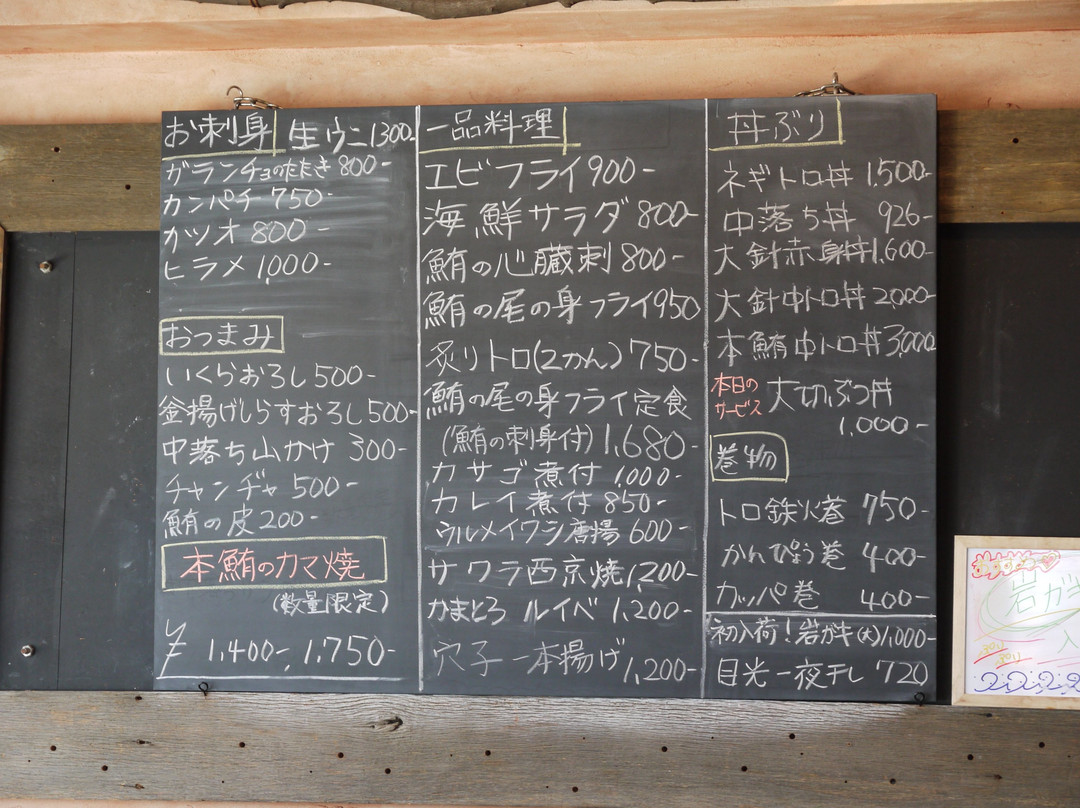 お刺身 生ウニ1300-
ガランチョのたたき 800-
カンパチ 750-
カツオ 800-
ヒラメ 1,000-
おつまみ
いくらおろし 500-
釜揚げしらすおろし 500-
中落ち山かけ 300-
チャンヂャ 500-
鮪の皮 200-
本鮪のカマ焼
(数量限定)
¥ 1,400-, 1,750-
一品料理
エビフライ 900-
海鮮サラダ 800-
鮪の心臓刺 800-
鮪の尾の身フライ950
炙りトロ(2かん) 750-
鮪の尾の身フライ定食
(鮪の刺身付) 1,680-
カサゴ煮付 1,000-
カレイ煮付 850-
ウルメイワシ唐揚 600-
サワラ西京焼 1,200-
かまとろ ルイベ 1,200-
穴子一本揚げ 1,200-
丼ぶり
ネギトロ丼 1,500-
中落ち丼 926-
大針赤身丼1,600-
大針中トロ丼 2,000-
本鮪中トロ丼 3,000-
本日の
サービス 大切ぶつ丼
1,000-
巻物
トロ鉄火巻 750-
かんぴょう巻 400-
カッパ巻 400-
初入荷!岩ガキ(大)1,000-
目光一夜干し 720
岩ガキ
入